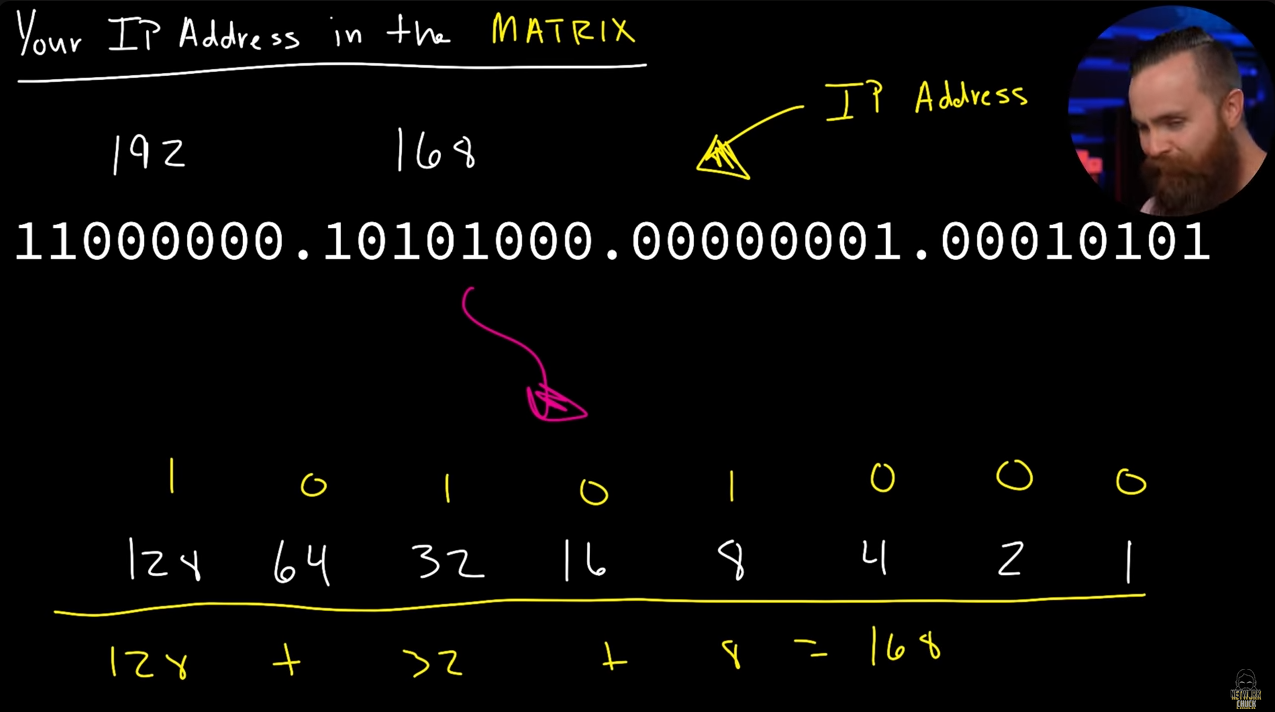 Your IP Address in the MATRIX
IP Address
192 168
11000000.10101000.00000001.00010101
1 0 1 0 1 0 0 0
128 64 32 16 8 4 2 1
128 + 32 + 8 = 168
NETWORK
CHUCK